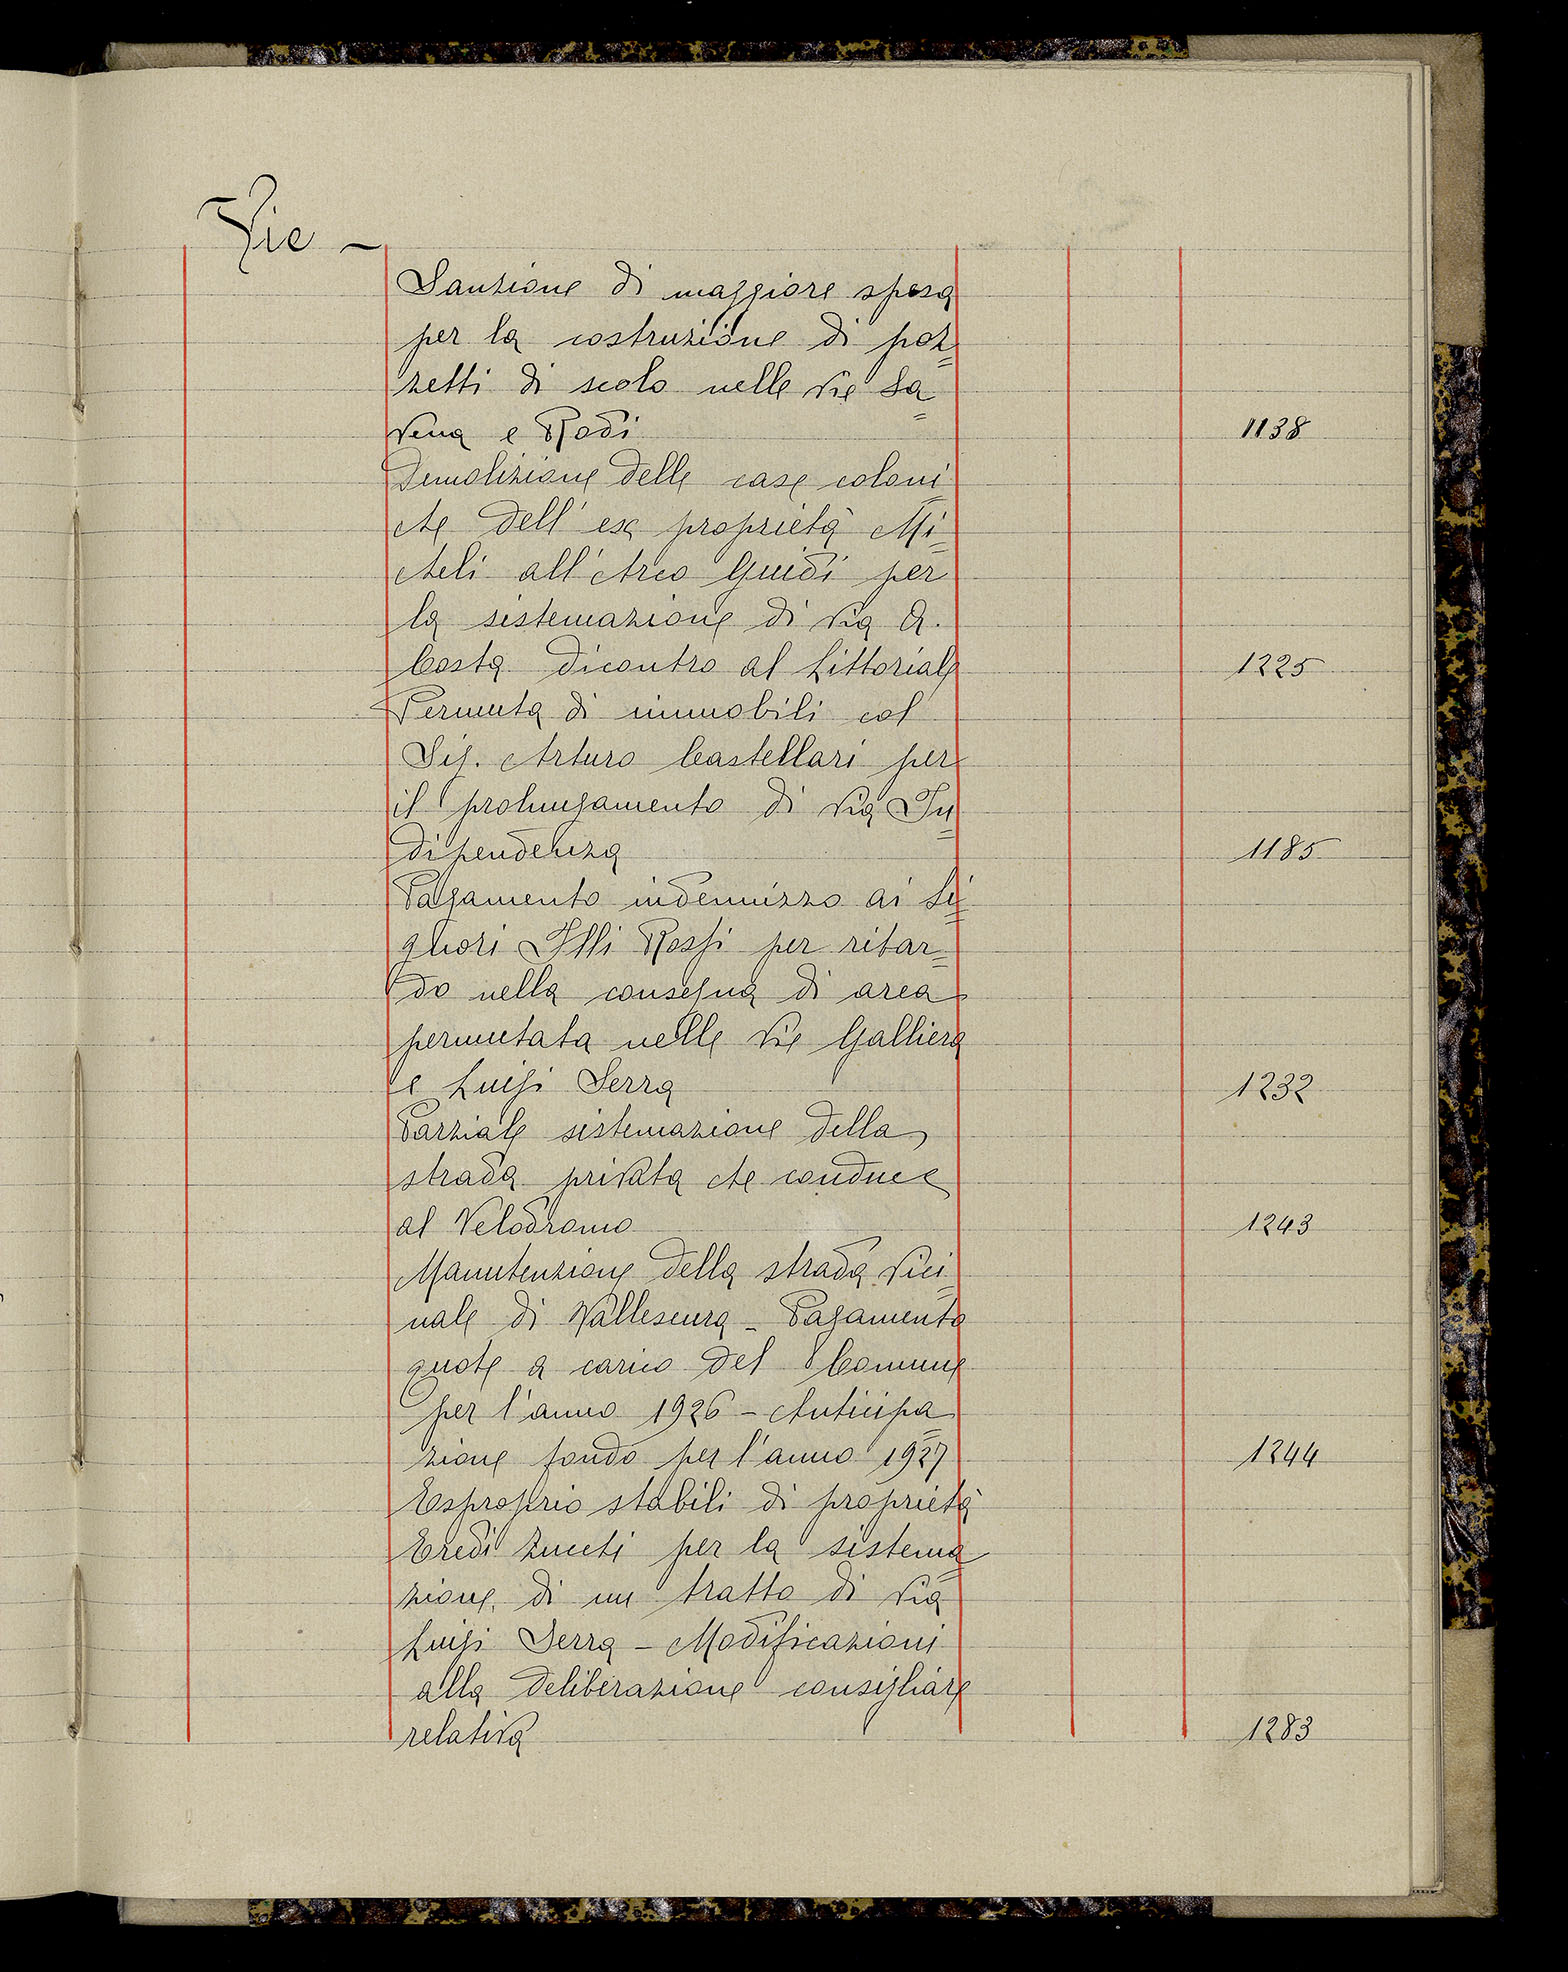 Vie -
Sanzione di maggiore spesa
per la costruzione di poz=
zetti di scolo nelle vie Sa=
vena e Rodi 1138
Demolizione delle case coloni=
che dell'ex proprietà Mi=
cheli all'Arco Guidi per
la sistemazione di via A.
Costa dicontro al Littoriale 1225
Permuta di immobili col
Sig. Arturo Castellari per
il prolungamento di via In=
dipendenza 1185
Pagamento indennizzo ai Si=
gnori Flli Rossi per ritar=
do nella consegna di area
permutata nelle vie Galliera
e Luigi Serra 1232
Parziale sistemazione della
strada privata che conduce
al Velodromo 1243
Manutenzione della strada vici=
nale di Vallescura - Pagamento
quote a carico del Comune
per l'anno 1926 - Anticipa=
zione fondo per l'anno 1927 1244
Esproprio stabili di proprietà
Eredi Zucchi per la sistema=
zione di un tratto di via
Luigi Serra - Modificazioni
alla deliberazione consigliare
relativa 1283